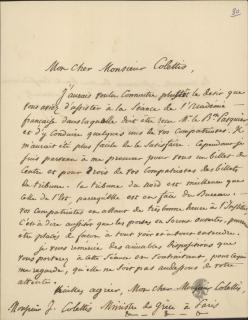 80
Mon cher Monsieur Colettis,
J'aurais voulu connaître plutôt le désir que
vous aviez d'assister à la Séance de l'Académie
française dans laquelle doit être reçu Mr. le Bon Pasquier
et d'y conduire quelques uns de vos compatriotes. Il
m'aurait été plus facile de le satisfaire. Cependant je
suis parvenu à me procurer pour vous un billet de
Centre et pour trois de vos compatriotes des billets
de tribune. La tribune du nord est meilleure que
celle de l'Est, parcequ'elle est en face du Bureau.
vos compatriotes en allant de bonne heure à l'Institut
C'est à dire aussitôt que les portes en seront ouvertes, pourront
être placés de façon à tout voir et tout entendre.
Je vous remercie des aimables dispositions que
vous portez à cette Séance en souhaitant, pour ce qui
me regarde, qu'elle ne soit pas au dessous de votre
attente.
Veuillez agréer, Mon cher Monsieur Colettis
Monsieur J. Colettis Ministre de Grèce à Paris